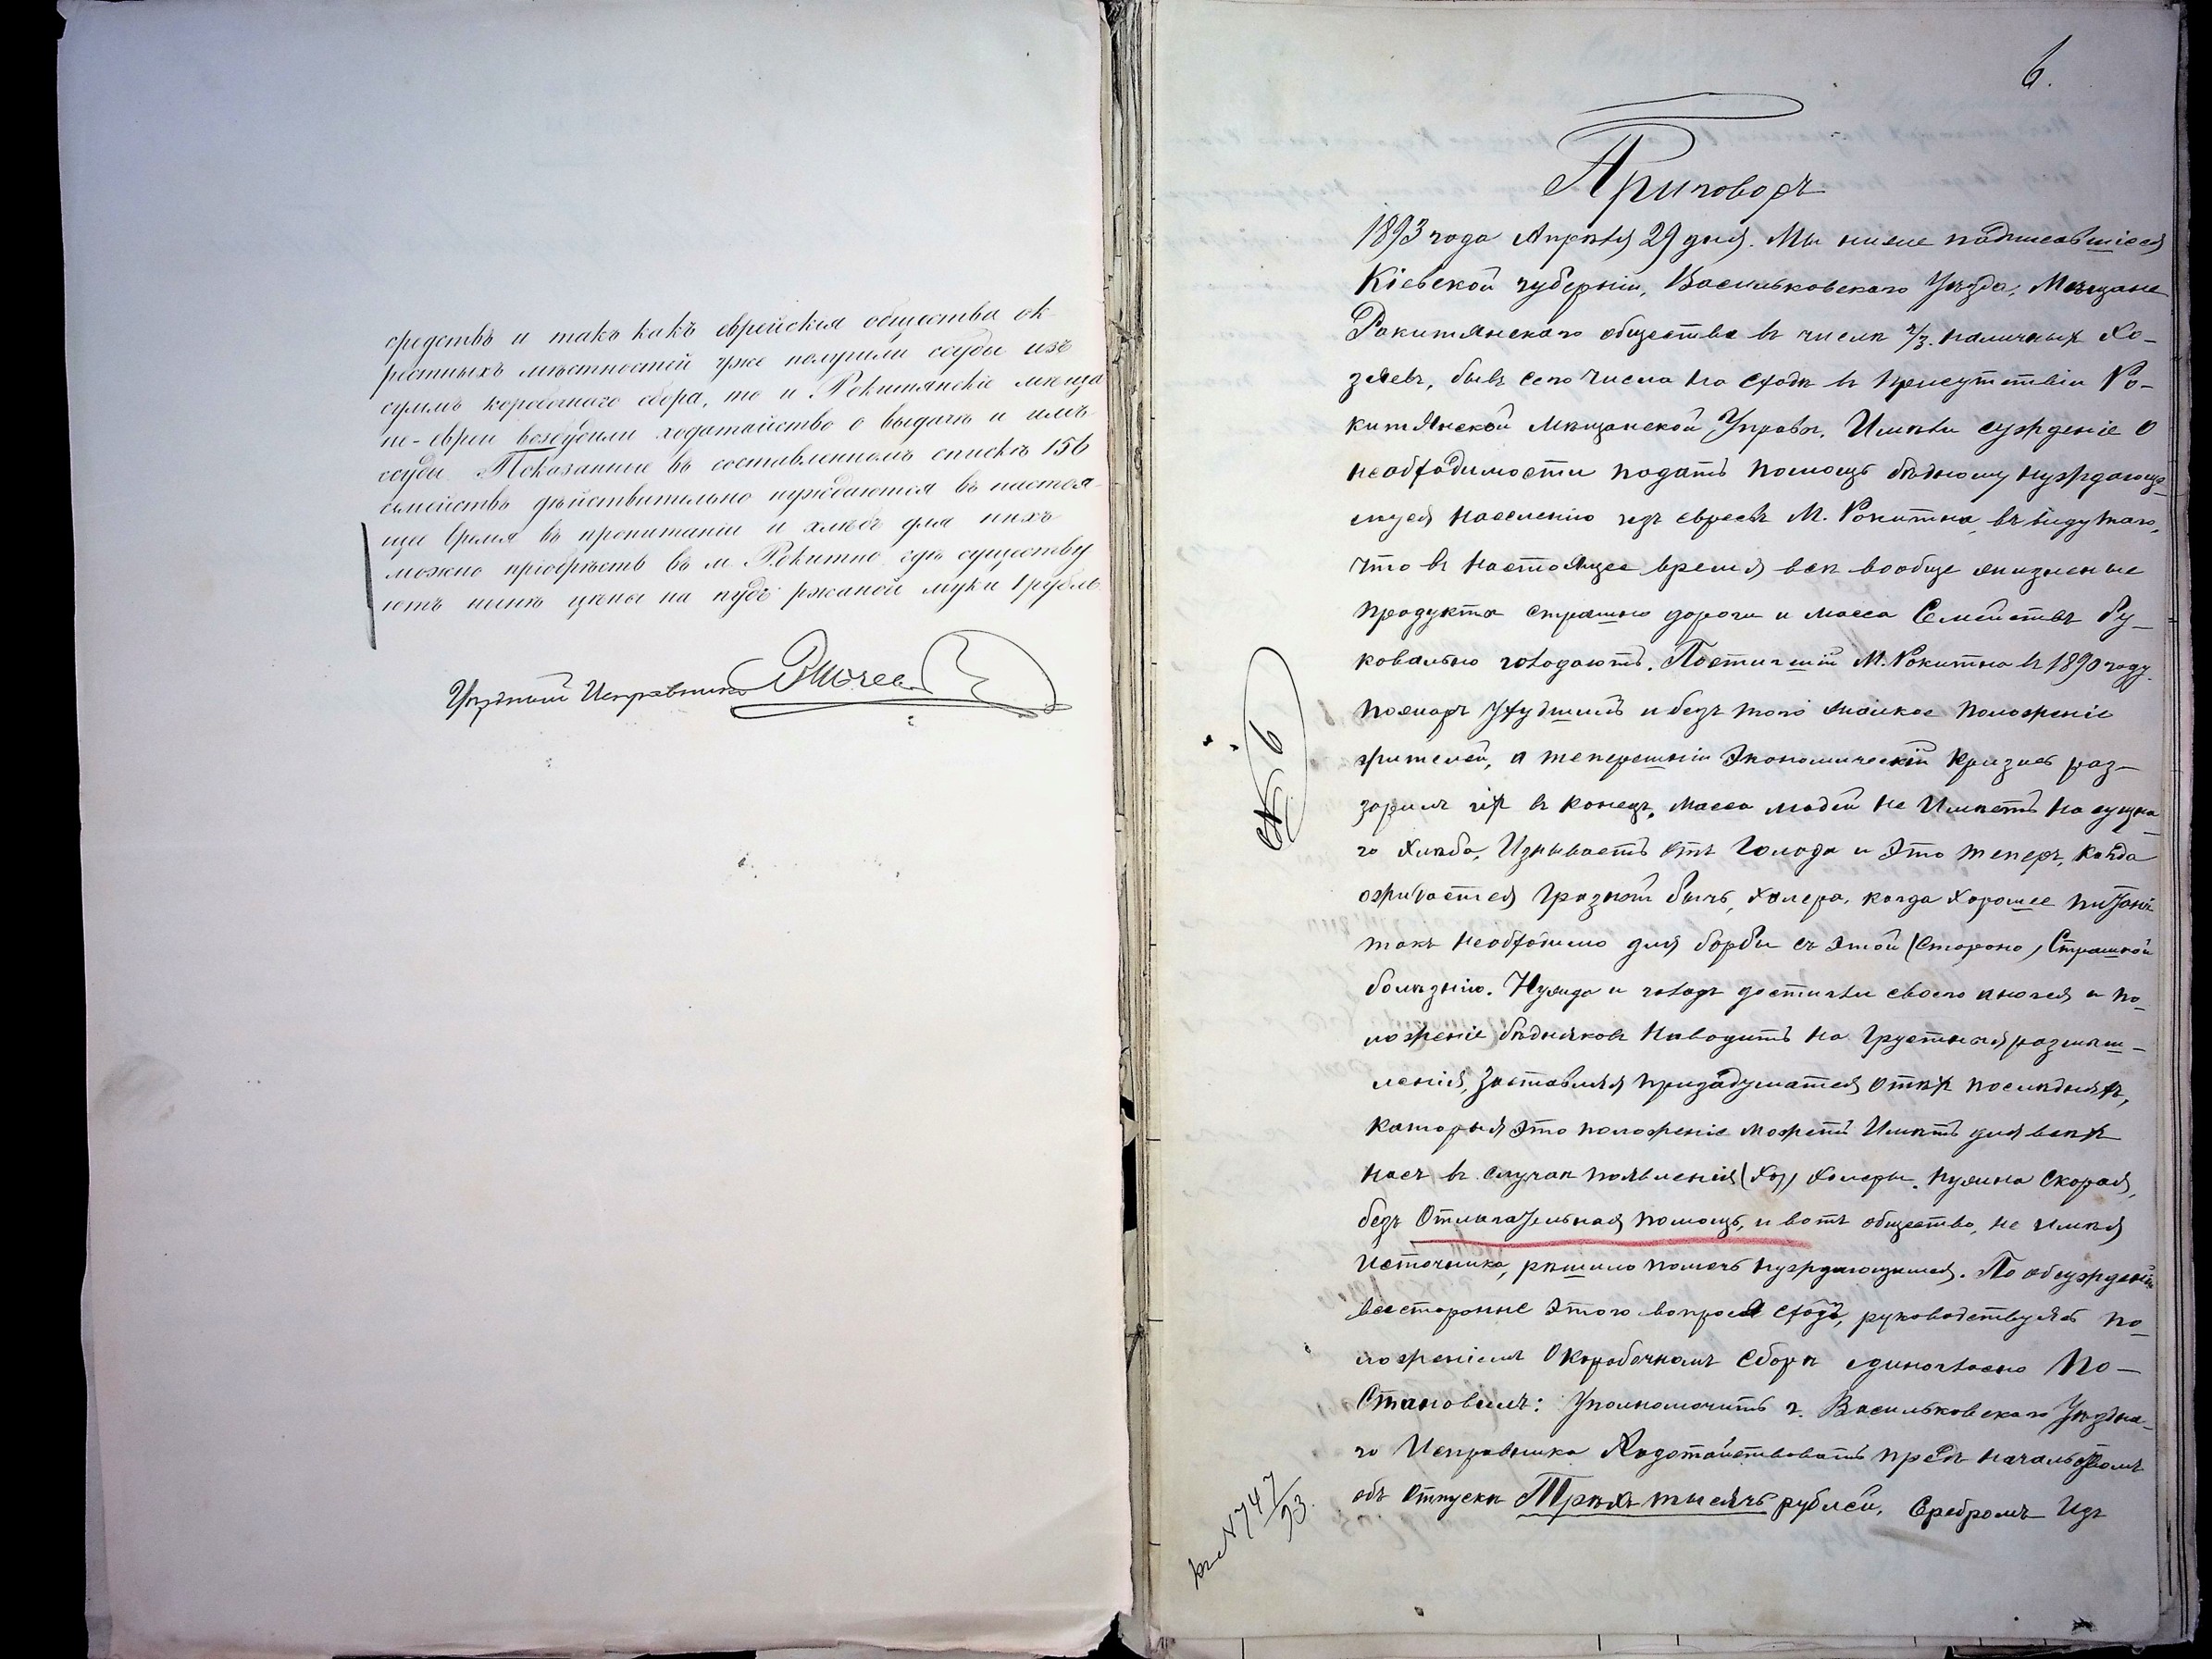 средствъ и такъ какъ еврейскія общества ок
рестныхъ мѣстностей уже получили ссуды изъ
суммъ коробочнаго сбора, то и Рокитянскіе мѣща
не-евреи возбудили ходатайство о выдачѣ и имъ
ссуды. Показанные въ составленномъ спискѣ 156
семействъ дѣйствительно нуждаются въ настоя-
ще время въ пропитаніи и хлѣбъ для нихъ
можно пріобрѣсть въ м. Рокитно, гдѣ существу
ютъ нынѣ цѣны на пудъ ржаной муки 1 рубль
Уѣздный Исправникъ
6.
Приговоръ
1893 года Апрѣля 29 дня. Мы ниже подписавшіеся
Кіевской губерніи, Васильковскаго Уѣзда, Мѣщане
Рокитянскаго общества въ числѣ 2/3 наличныхъ Хо-
зяевъ, бывъ сего числа на сходѣ въ присутствіи Ро-
китянской Мѣщанской Управы, Имѣли сужденіе о
необходимости подать помощь бѣдному нуждающе-
муся населенію изъ евреевъ М. Рокитна, въ виду того,
что въ настоящее время всѣ вообще жизненые
продукты страшно дороги и масса Семействъ бу-
ковально голодаютъ. Постигшій М. Рокитна въ 1890 году
пожаръ ухудшилъ и безъ того жалкое положеніе
жителей, а теперешній Экономическій кризисъ раз-
зорилъ ихъ въ конецъ. Масса людей не Имѣетъ насущна-
го хлѣба, Изнываетъ отъ Голода и Это теперъ, когда
ожидается Грозный бичъ, холера, когда хорошее питаніе
такъ необходимо для борбы съ этой (стороно) Страшной
болѣзнію. Нужда и голодъ достигли своего апогея и по-
ложеніе бѣдняковъ наводитъ на Грустныя размыш-
ленія, заставляя призадуматся о тѣхъ послѣдняхъ,
которыя Это положеніе можетъ Имѣть для всѣхъ
насъ въ случаѣ появленія (Хо) Холеры. Нужна Скорая,
безъ Отлагательная помощь, и вотъ общество, не имѣя
Источника, рѣшило помочь нуждающимся. По обсужденіи
всесторонне Этого вопроса сходъ, руководствуясь по-
ложеніемъ О коробочномъ сборѣ единогласно По-
Становилъ: Уполномочить г. Васильковскаго Уѣздна-
го Исправника Ходотайствовать предъ начальствомъ
объ Отпускѣ Трехъ тысячъ рублей, Сребромъ Изъ
№ 6
къ № 747/93.